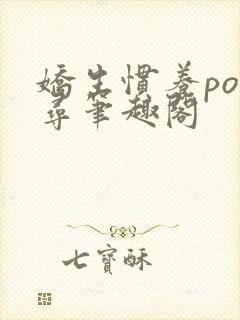 嬌生慣養po
尋筆趣閣
七寶酥